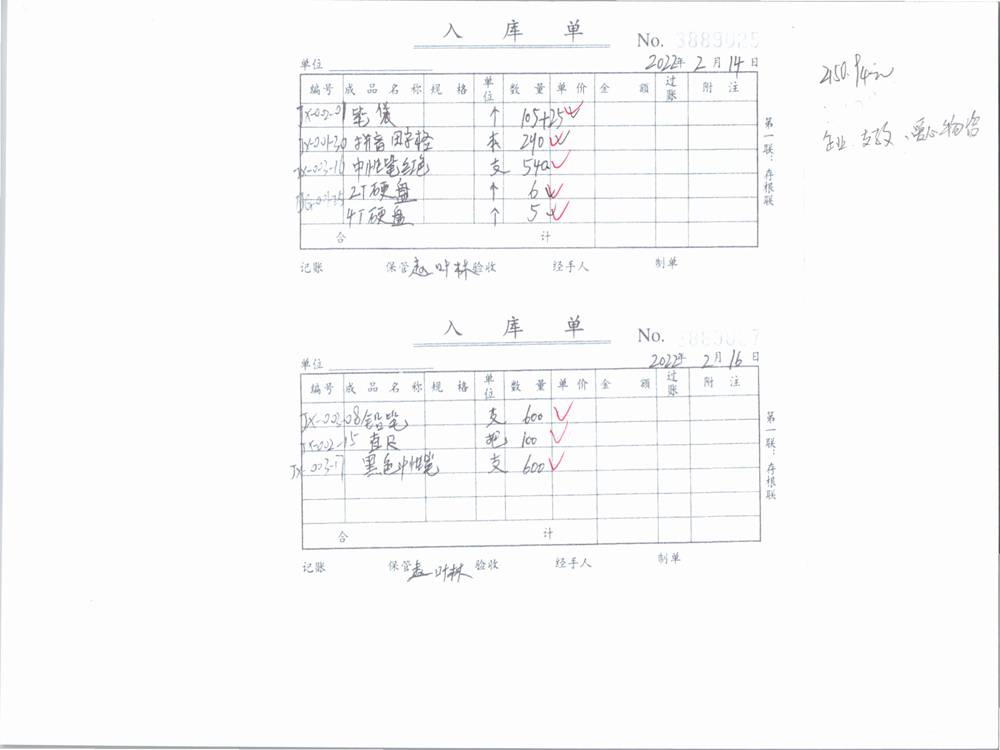 入 库 单
No. 3889025
单位 2022年 2月 14日
编号 成品名称 规格 单位 数量 单价 金额 过账 附注
JX-002-01 笔袋 个 105+25
JX-001-30 拼音田字格 本 240
JX-003-16 中性笔红色 支 540
2T硬盘 个 6
4T硬盘 个 5
合 计
第一联:存根联
记账 保管 赵叶林 验收 经手人 制单
入 库 单
No.
单位 2022年 2月 16日
编号 成品名称 规格 单位 数量 单价 金额 过账 附注
JX-003-08 铅笔 支 600
JX-002-15 直尺 把 100
JX-003-17 黑色中性笔 支 600
合 计
第一联:存根联
记账 保管 赵叶林 验收 经手人 制单
爱心物资